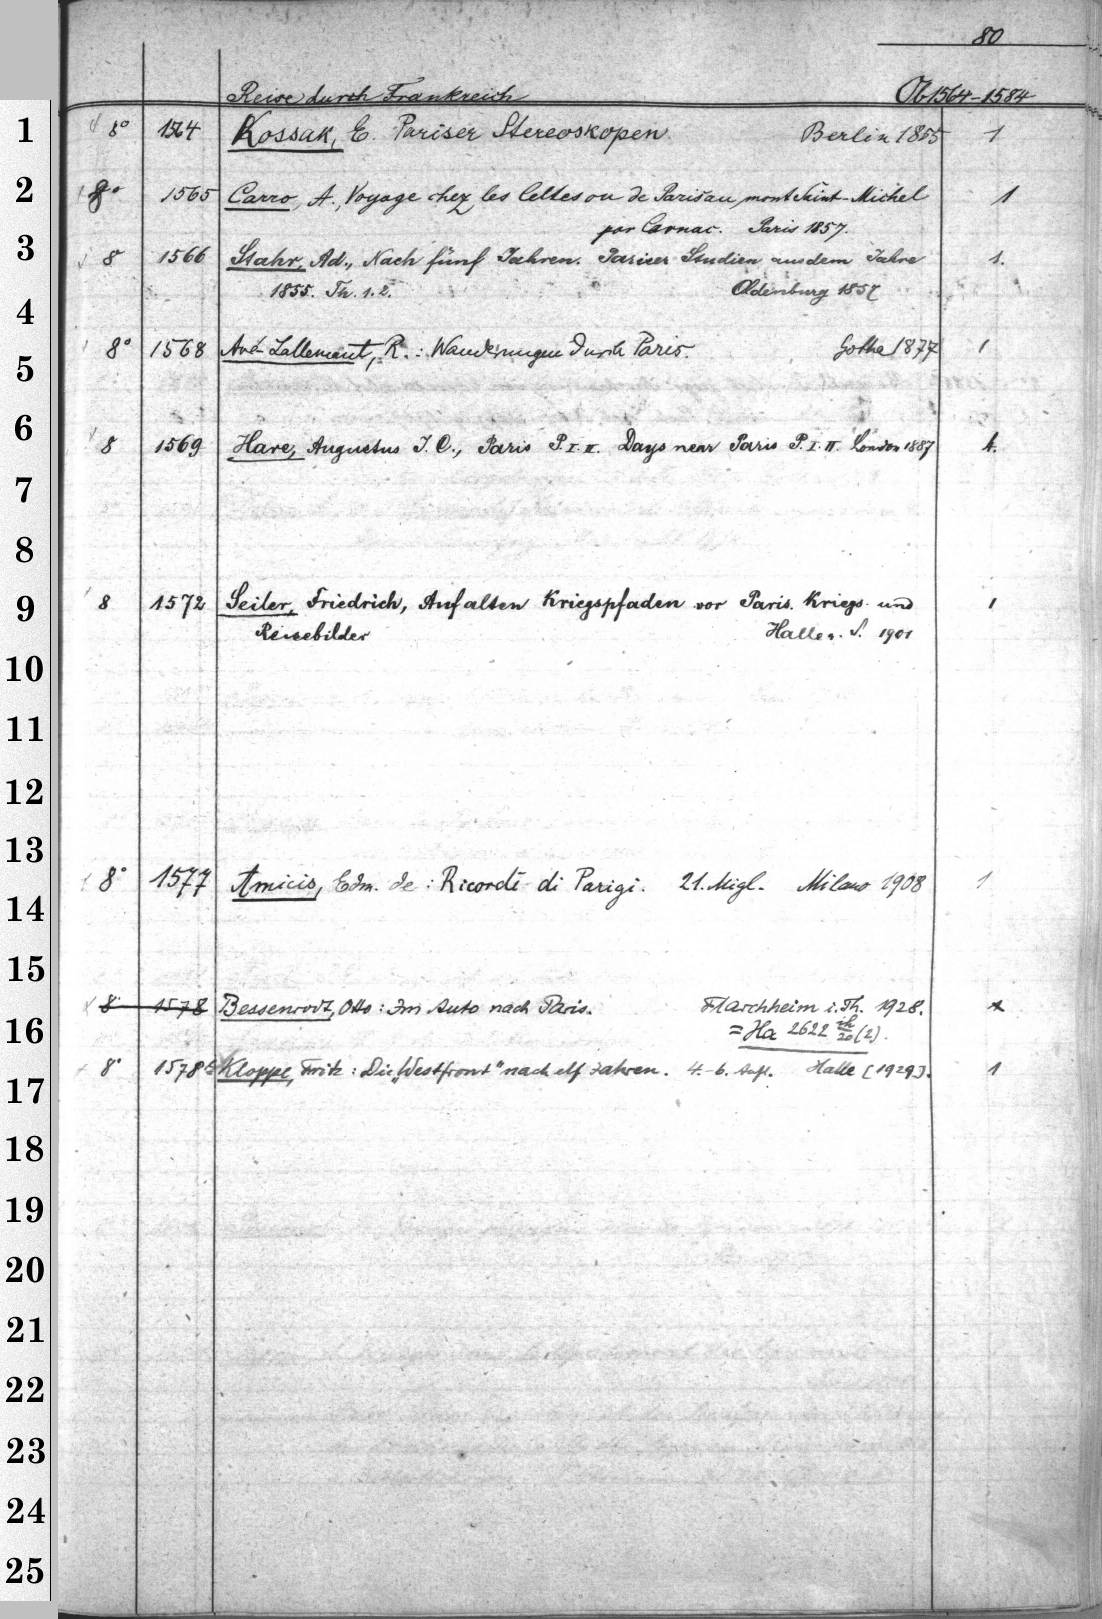 80
Reise durch Frankreich Ob 1564-1584
1 8° 1564 Kossak, E. Pariser Stereoskopen Berlin 1855 1
2 8° 1565 Carro, A., Voyage chez les Celtes ou de Paris au mont Saint-Michel 1
par Carnac. Paris 1857.
3 8 1566 Stahr, Ad., Nach fünf Jahren. Pariser Studien aus dem Jahre 1.
1855. Th. 1.2. Oldenburg 1857
4
8° 1568 Avé-Lallemant, R.: Wanderungen durch Paris. Gotha 1877 1
5
6
8 1569 Hare, Augustus J. C., Paris P. I. II. Days near Paris P. I. II. London 1887 4.
7
8
9 8 1572 Seiler, Friedrich, Auf alten Kriegspfaden vor Paris. Kriegs- und 1
Reisebilder Halle a. S. 1901
10
11
12
13
8° 1577 Amicis, Edm. de: Ricordi di Parigi. 21. Migl. Milano 1908 1
14
15
8 1578 Bessenrodt, Otto: Im Auto nach Paris. Flarchheim i. Th. 1928.
16 = Ha 2622 (2).
8° 1578 Kloppe, Fritz: Die „Westfront" nach elf Jahren. 4.-6. Aufl. Halle [1929]. 1
17
18
19
20
21
22
23
24
25